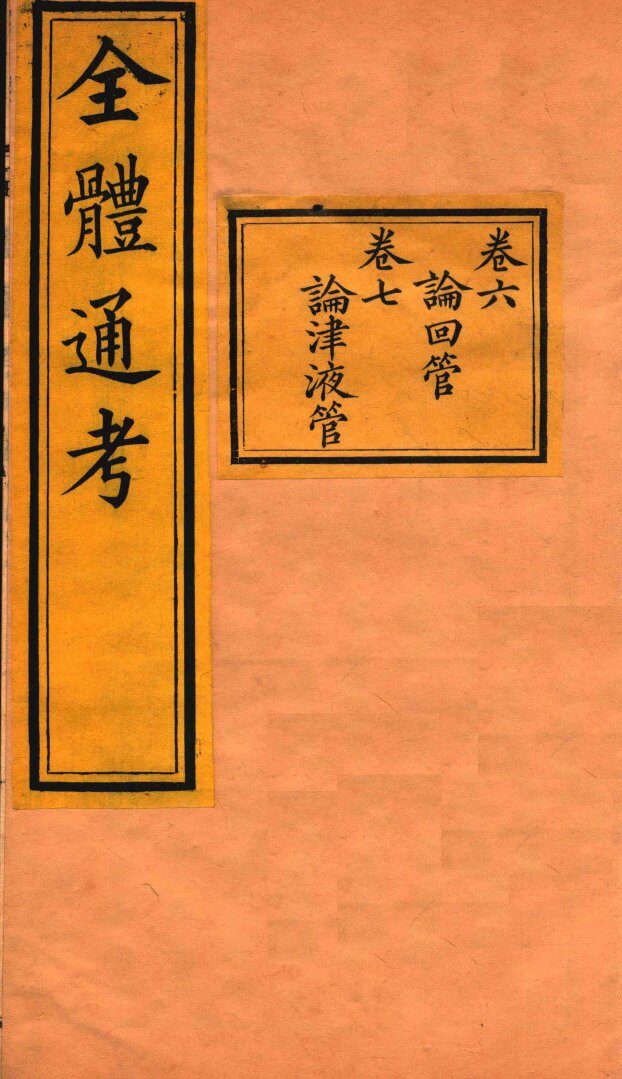 全體通考
卷六
論回管
卷七
論津液管